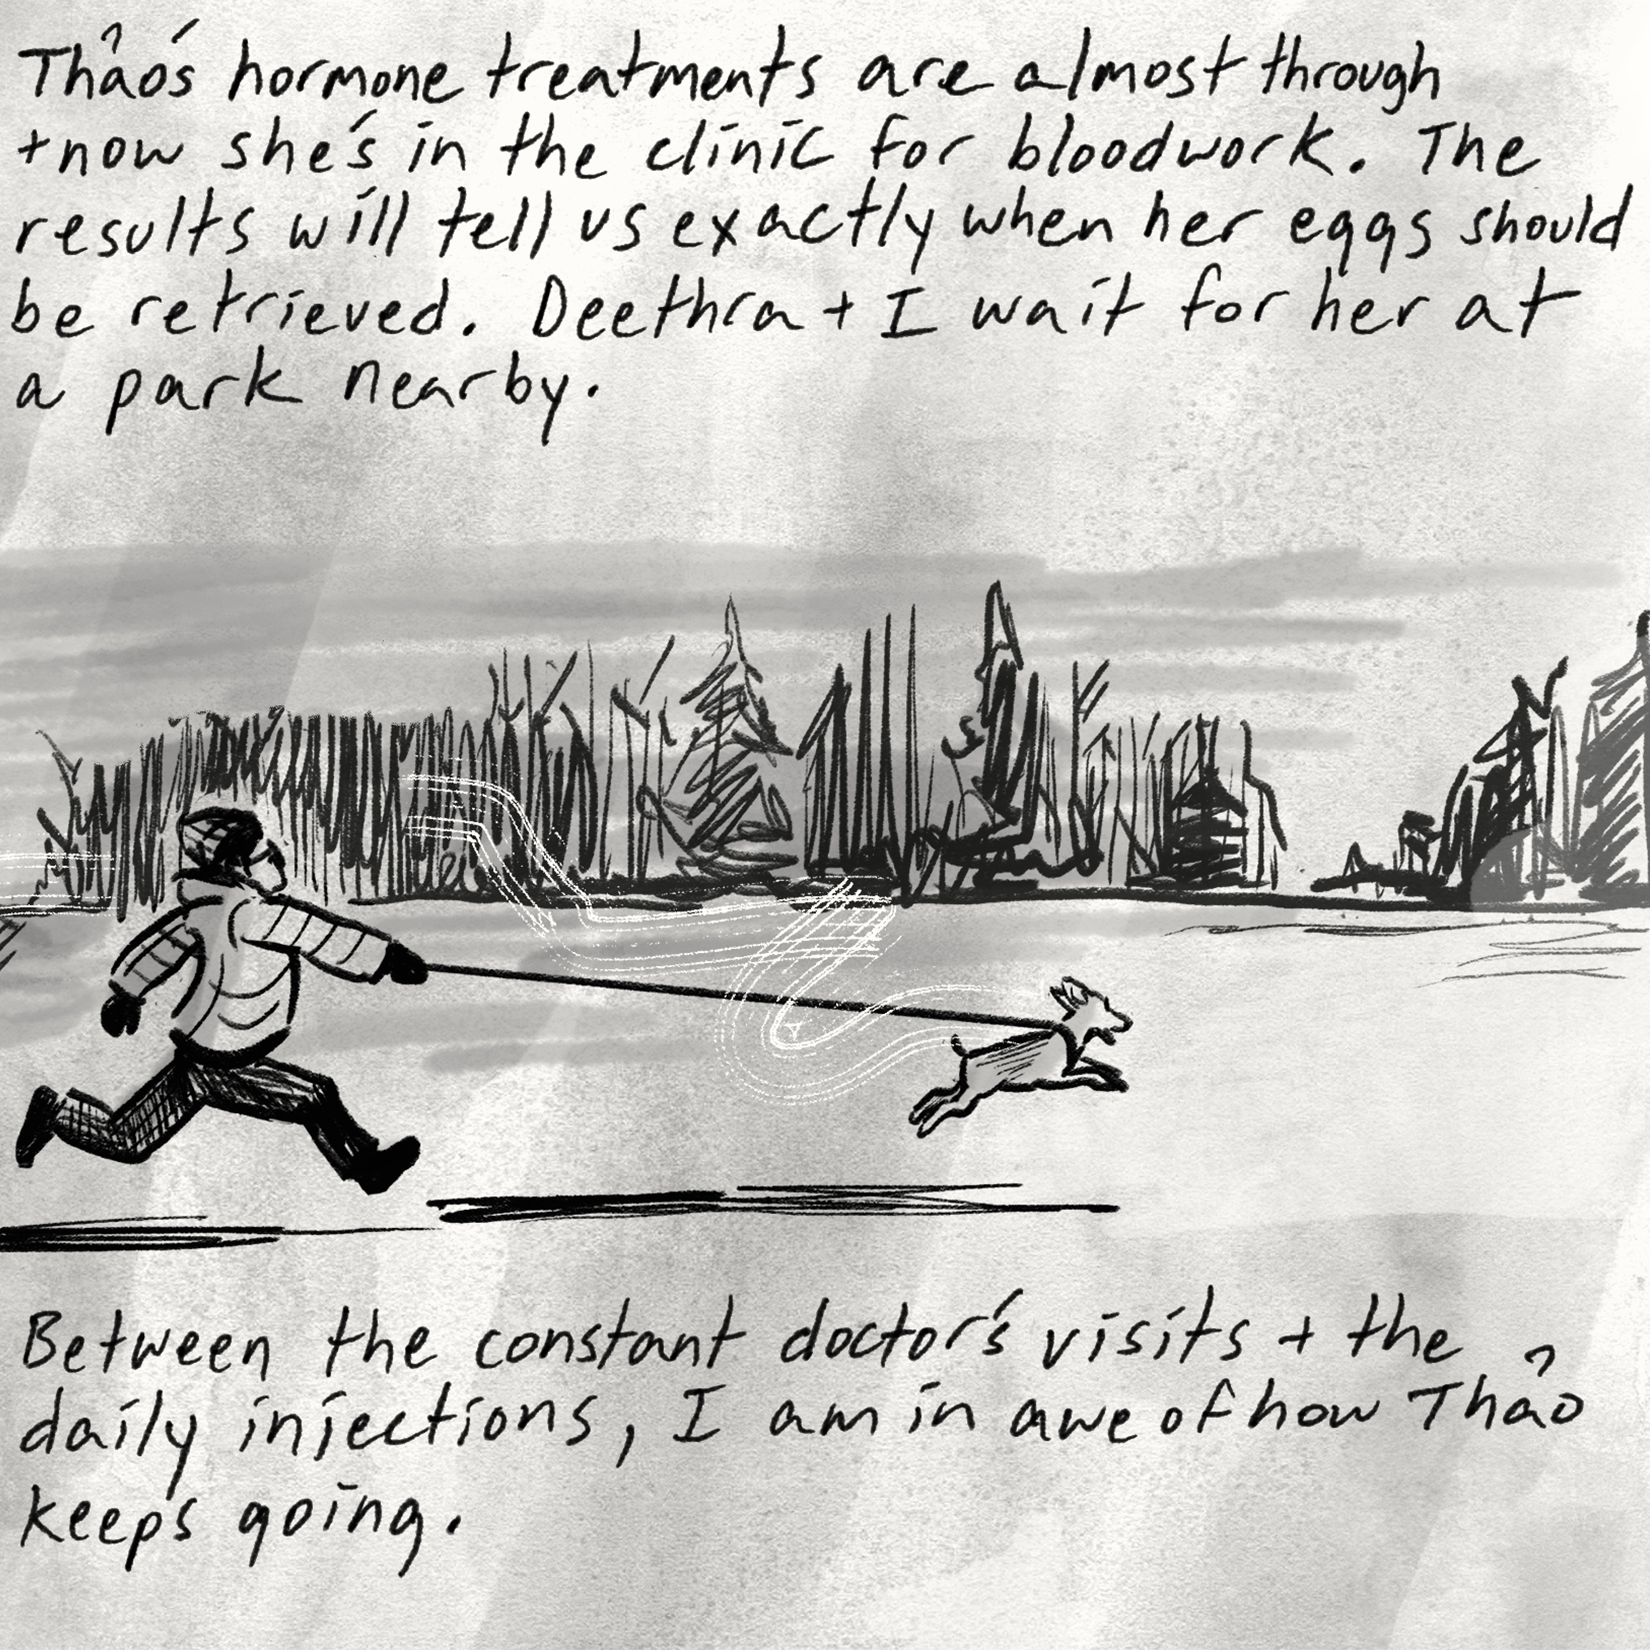 Thảo's hormone treatments are almost through
+ now she's in the clinic for bloodwork. The
results will tell us exactly when her eggs should
be retrieved. Deethra + I wait for her at
a park nearby.
Between the constant doctor's visits + the
daily injections, I am in awe of how Thảo
keeps going.